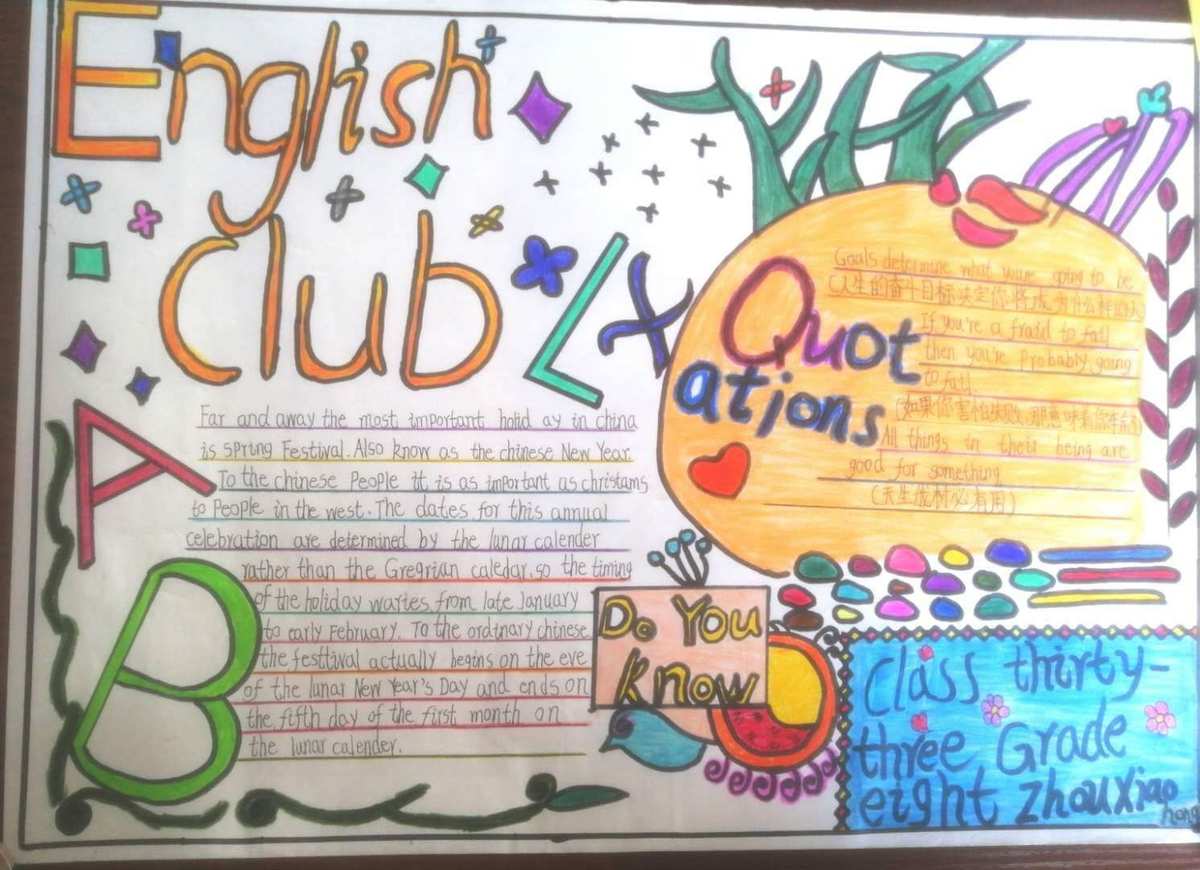 English
Club
A
B
L
X
Far and away the most important holid ay in china
is spring Festival. Also know as the chinese New Year.
To the chinese People it is as important as christams
to People in the west. The dates for this annual
celebration are determined by the lunar calender
rather than the Gregrian caledar, so the timing
of the holiday wartes from late January
to early February. To the ordinary chinese
the festtival actually begins on the eve
of the lunar New Year's Day and ends on
the fifth day of the first month on
the lunar calender.
Quot
ations
Goals determine what you're going to be.
(人生的奋斗目标决定你将成为什么样的人)
If you're a fraid to fall
then you're Probably going
to fall.
(如果你害怕失败,那意味着你
All things in their being are
good for something
(天生我材必有用)
Do You
Know
Class thirty-
three Grade
eight zhouxiao
hong